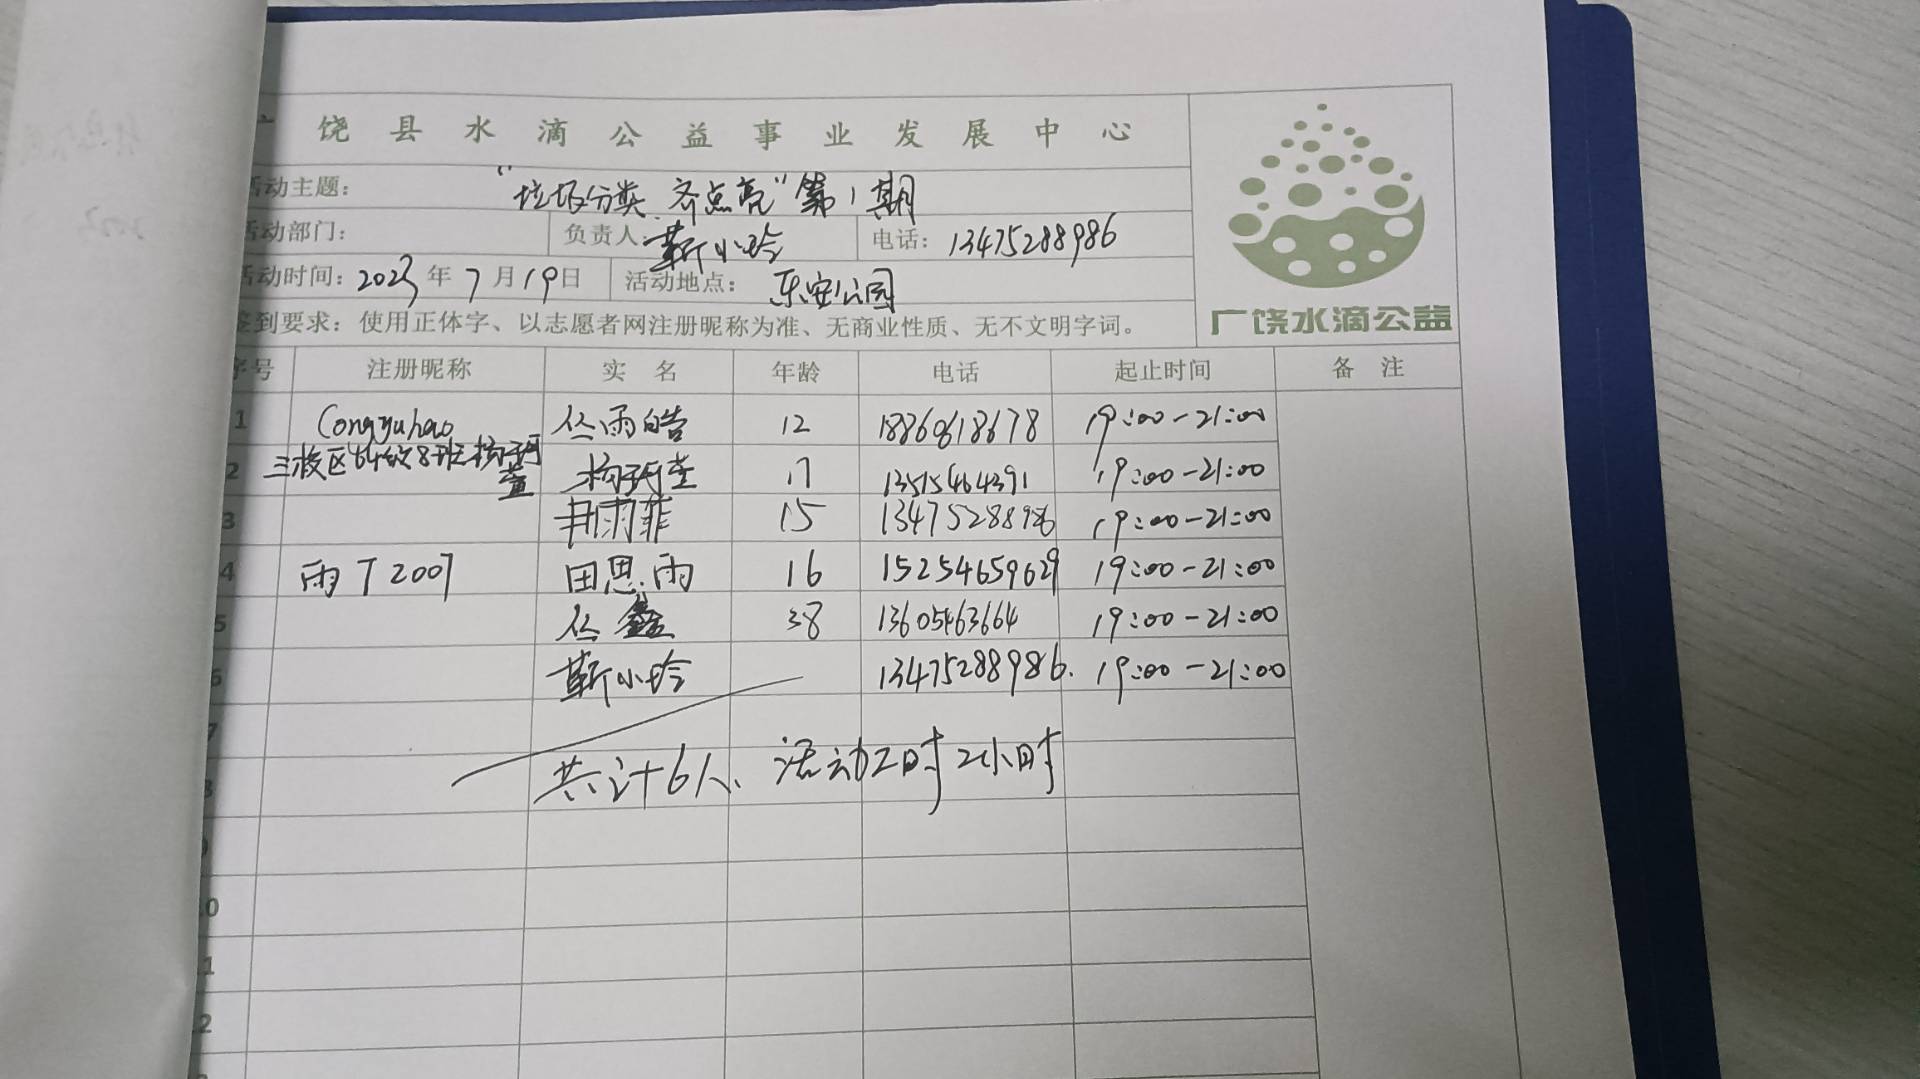 饶县水滴公益事业发展中心
活动主题： “垃圾分类 齐点亮”第1期
活动部门： 负责人： 靳小玲 电话： 13475288986
活动时间： 2023年7月19日 活动地点： 乐安公园
签到要求：使用正体字、以志愿者网注册昵称为准、无商业性质、无不文明字词。
广饶水滴公益
序号 注册昵称 实名 年龄 电话 起止时间 备注
1 Congyuhao 丛雨皓 12 18860618678 19:00-21:00
2 三校区64级8班 17 13515464391 19:00-21:00
3 雨菲 15 13475288986 19:00-21:00
4 雨T2007 田思雨 16 15254659629 19:00-21:00
5 丛鑫 38 13605463664 19:00-21:00
6 靳小玲 13475288986. 19:00-21:00
7
8 共计6人、活动工时2小时
9
10
11
12